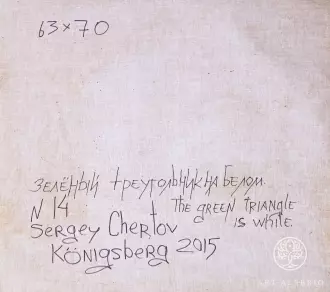 63×70
зелёный треугольник на белом.
N 14 The green triangle
is white.
Sergey Chertov
Königsberg 2015